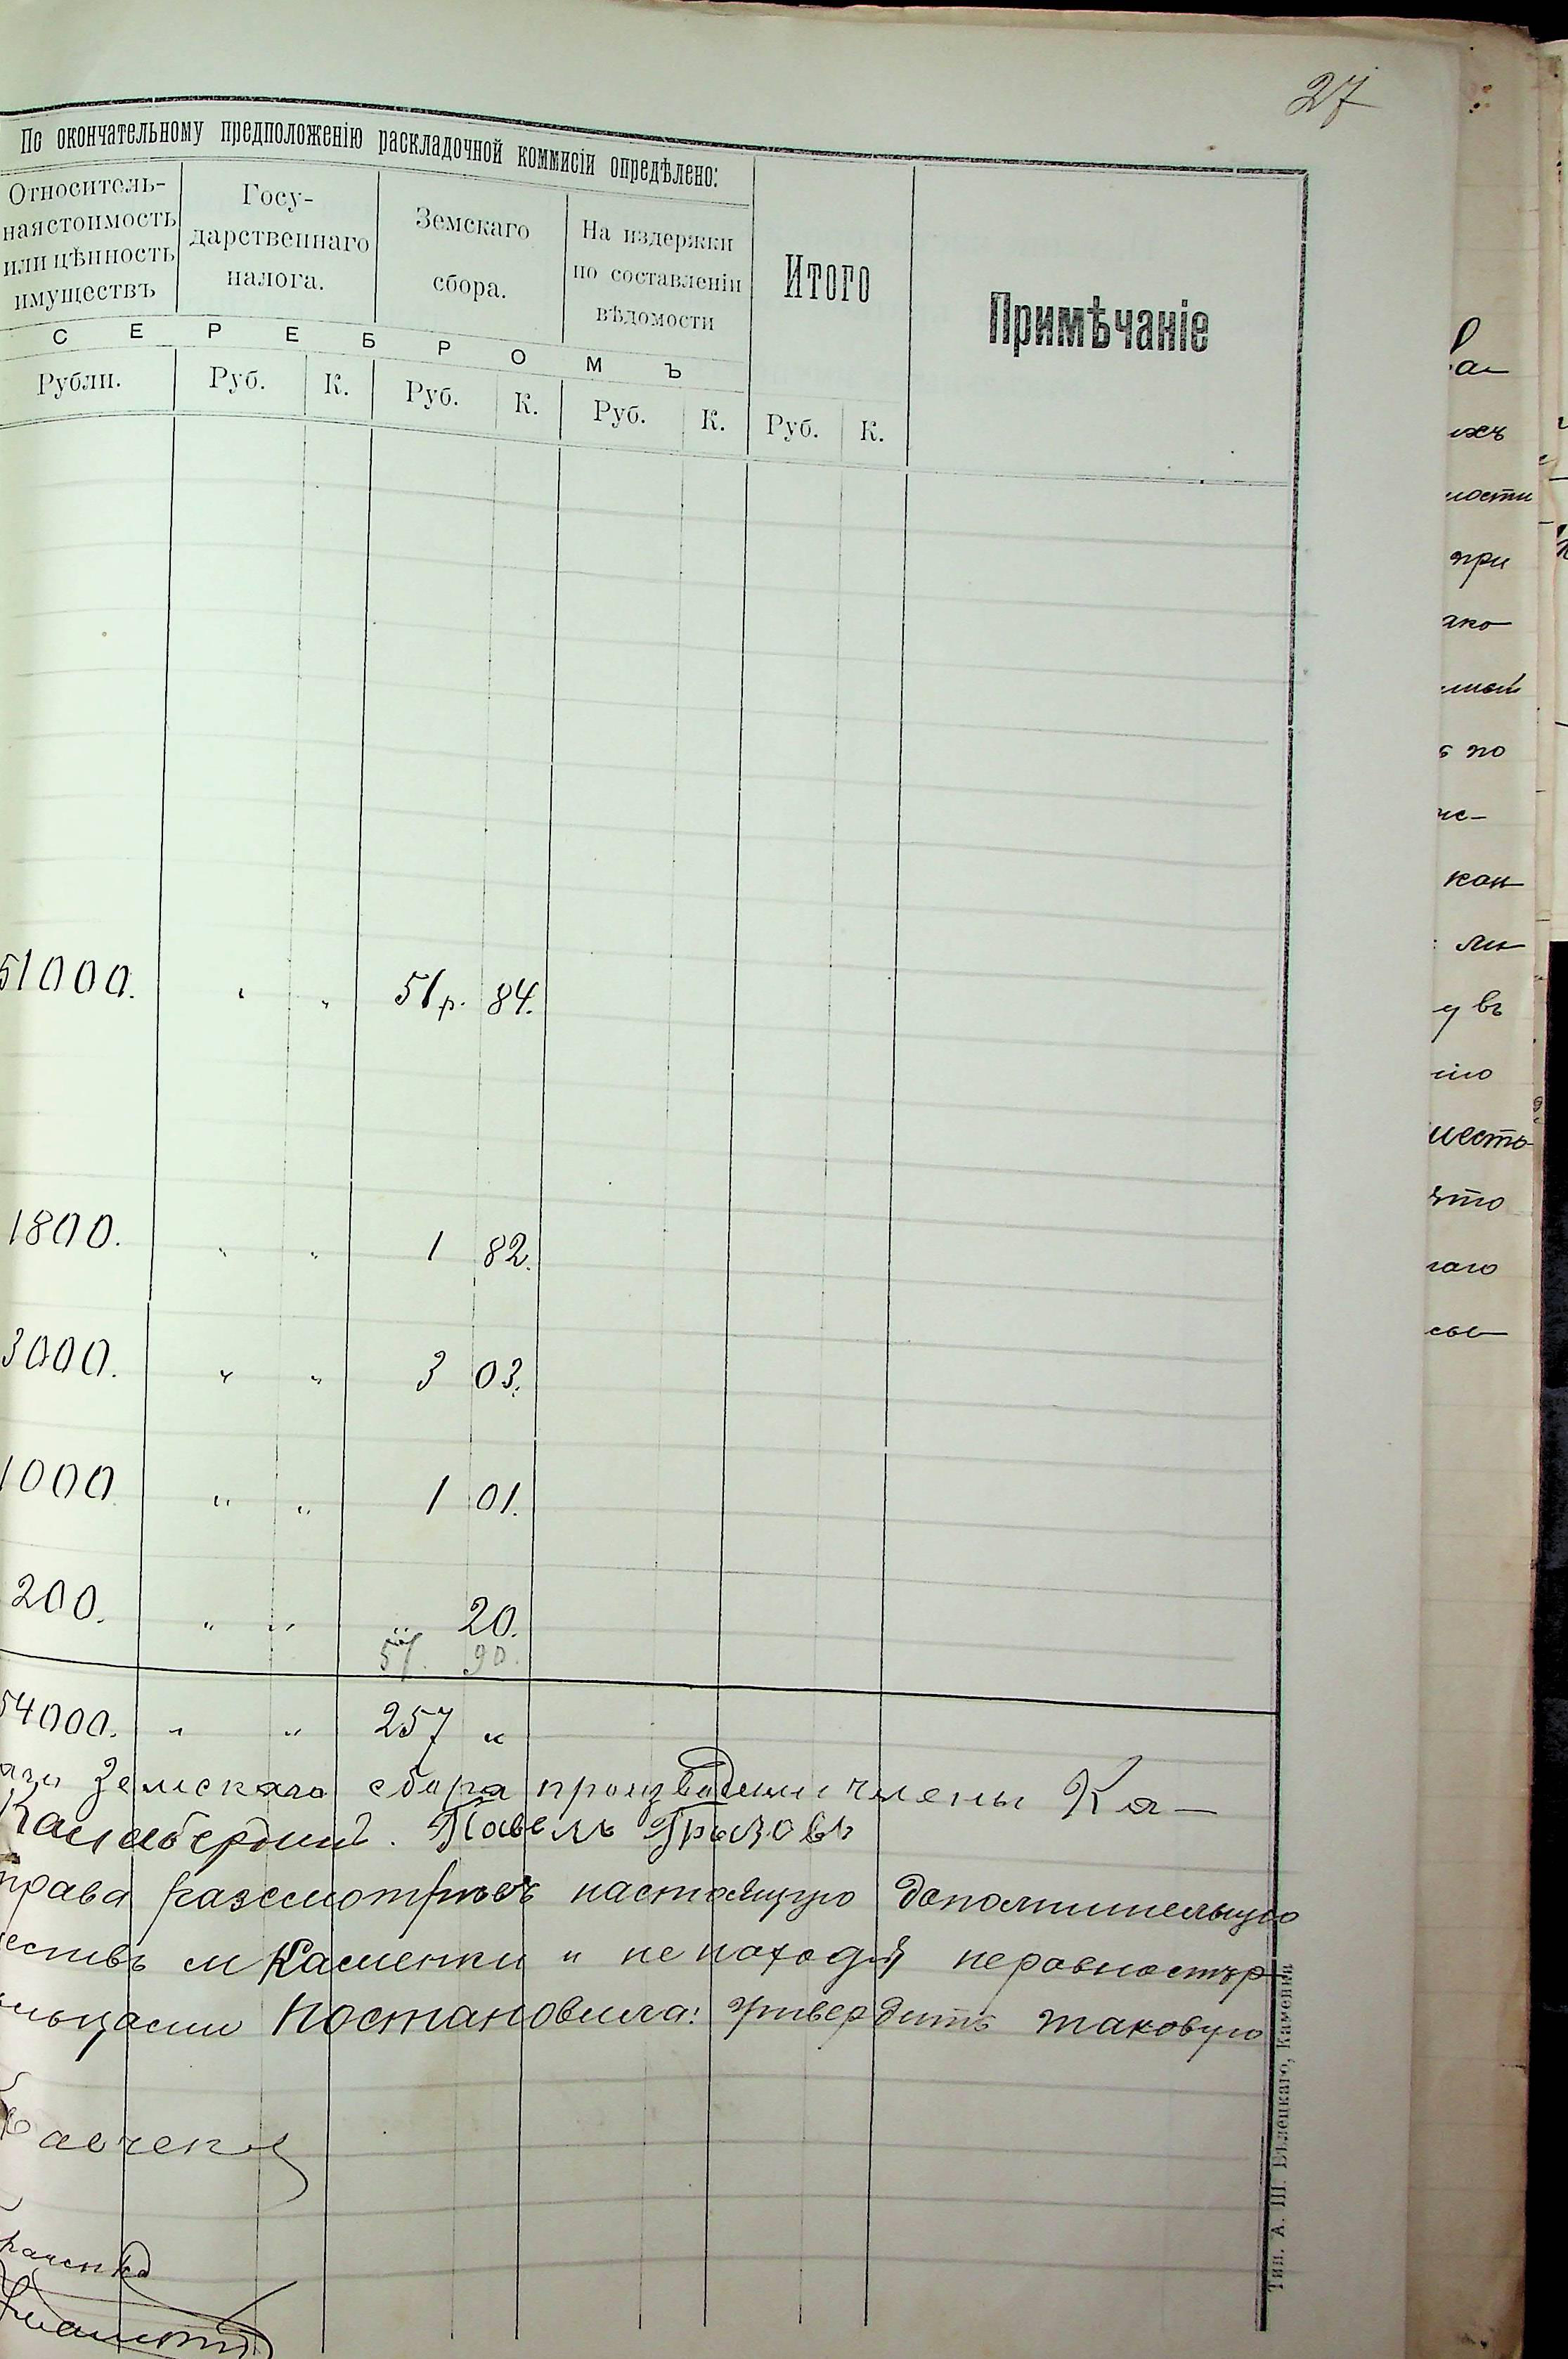 27
По окончательному предположенію раскладочной коммисіи опредѣлено:
Относитель-
ная стоимость
или цѣнность
имуществъ
Госу-
дарственнаго
налога.
Земскаго
сбора.
На издержки
по составленіи
вѣдомости
Итого
Примѣчаніе
СЕРЕБРОМЪ
Рубли. Руб. К. Руб. К. Руб. К. Руб. К.
51000. " " 51р. 84.
1800. " " 1 82.
3000. " " 3 03.
1000 " " 1 01.
200. " " " 20.
57. 90.
54000. " " 257 "
Земскаго сбора производили члены Ка-
Павелъ
права разсмотрѣвъ настоящую дополнительную
м Каменки и не находя
Постановила: утвердить таковую
Тип. А. Ш. Бѣлецкаго, Каменка
ихъ
ности
при
ако
по
кон
у въ
что